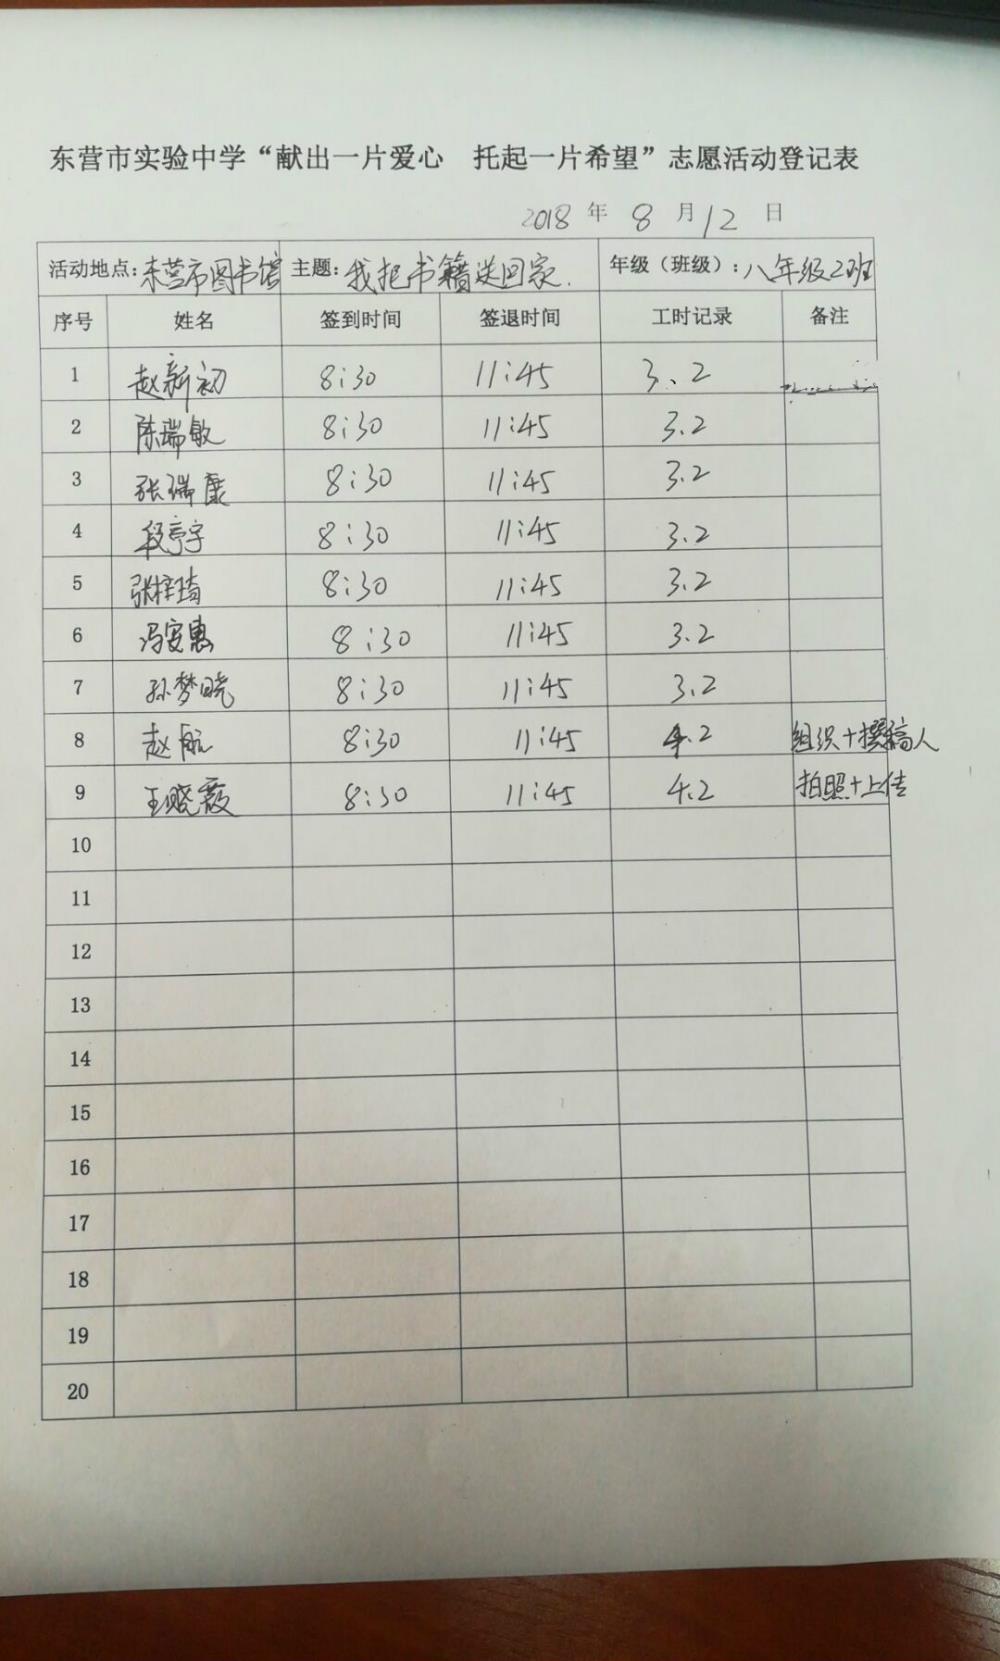 东营市实验中学“献出一片爱心 托起一片希望”志愿活动登记表
2018 年 8 月 12 日
活动地点:东营市图书馆 主题:我把书籍送回家. 年级（班级）:八年级2班
序号 姓名 签到时间 签退时间 工时记录 备注
1 赵新初 8:30 11:45 3、2
2 陈瑞敏 8:30 11:45 3.2
3 张瑞康 8:30 11:45 3.2
4 段亭宇 8:30 11:45 3.2
5 张梓琦 8:30 11:45 3.2
6 冯安惠 8:30 11:45 3.2
7 孙梦晓 8:30 11:45 3.2
8 赵航 8:30 11:45 4.2 组织+撰稿人
9 王晓霞 8:30 11:45 4.2 拍照+上传
10
11
12
13
14
15
16
17
18
19
20